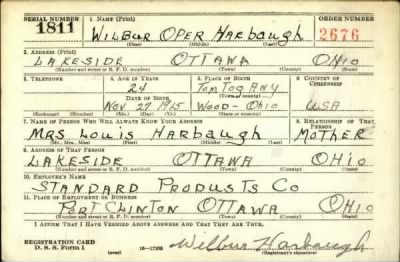 SERIAL NUMBER 1. NAME (Print) ORDER NUMBER
1811 WILBUR OPER HARBAUGH 2676
(First) (Middle) (Last)
2. ADDRESS (Print)
LAKESIDE OTTAWA OHIO
(Number and street or R. F. D. number) (Town) (County) (State)
3. TELEPHONE 4. AGE IN YEARS 5. PLACE OF BIRTH 6. COUNTRY OF CITIZENSHIP
24 TONTOGANY
DATE OF BIRTH (Town or county)
Nov 27 1915 WOOD-OHIO USA
(Exchange) (Number) (Mo.) (Day) (Yr.) (State or country)
7. NAME OF PERSON WHO WILL ALWAYS KNOW YOUR ADDRESS 8. RELATIONSHIP OF THAT PERSON
MRS LOUIS HARBAUGH MOTHER
(Mr., Mrs., Miss) (First) (Middle) (Last)
9. ADDRESS OF THAT PERSON
LAKESIDE OTTAWA OHIO
(Number and street or R. F. D. number) (Town) (County) (State)
10. EMPLOYER'S NAME
STANDARD PRODUSTS CO
11. PLACE OF EMPLOYMENT OR BUSINESS
PORT CLINTON OTTAWA OHIO
(Number and street or R. F. D. number) (Town) (County) (State)
I AFFIRM THAT I HAVE VERIFIED ABOVE ANSWERS AND THAT THEY ARE TRUE.
REGISTRATION CARD
D. S. S. Form 1 (over) 16—17105 Wilbur Harbaugh
(Registrant's signature)